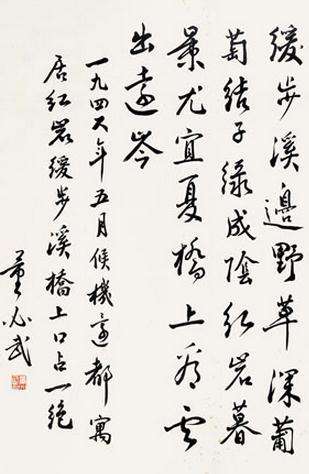 缓步溪边野草深葡
萄结子绿成阴红岩暮
景尤宜夏桥上看云
出远岑
一九四六年五月候机还都寓
居红岩缓步溪桥上口占一绝
董必武